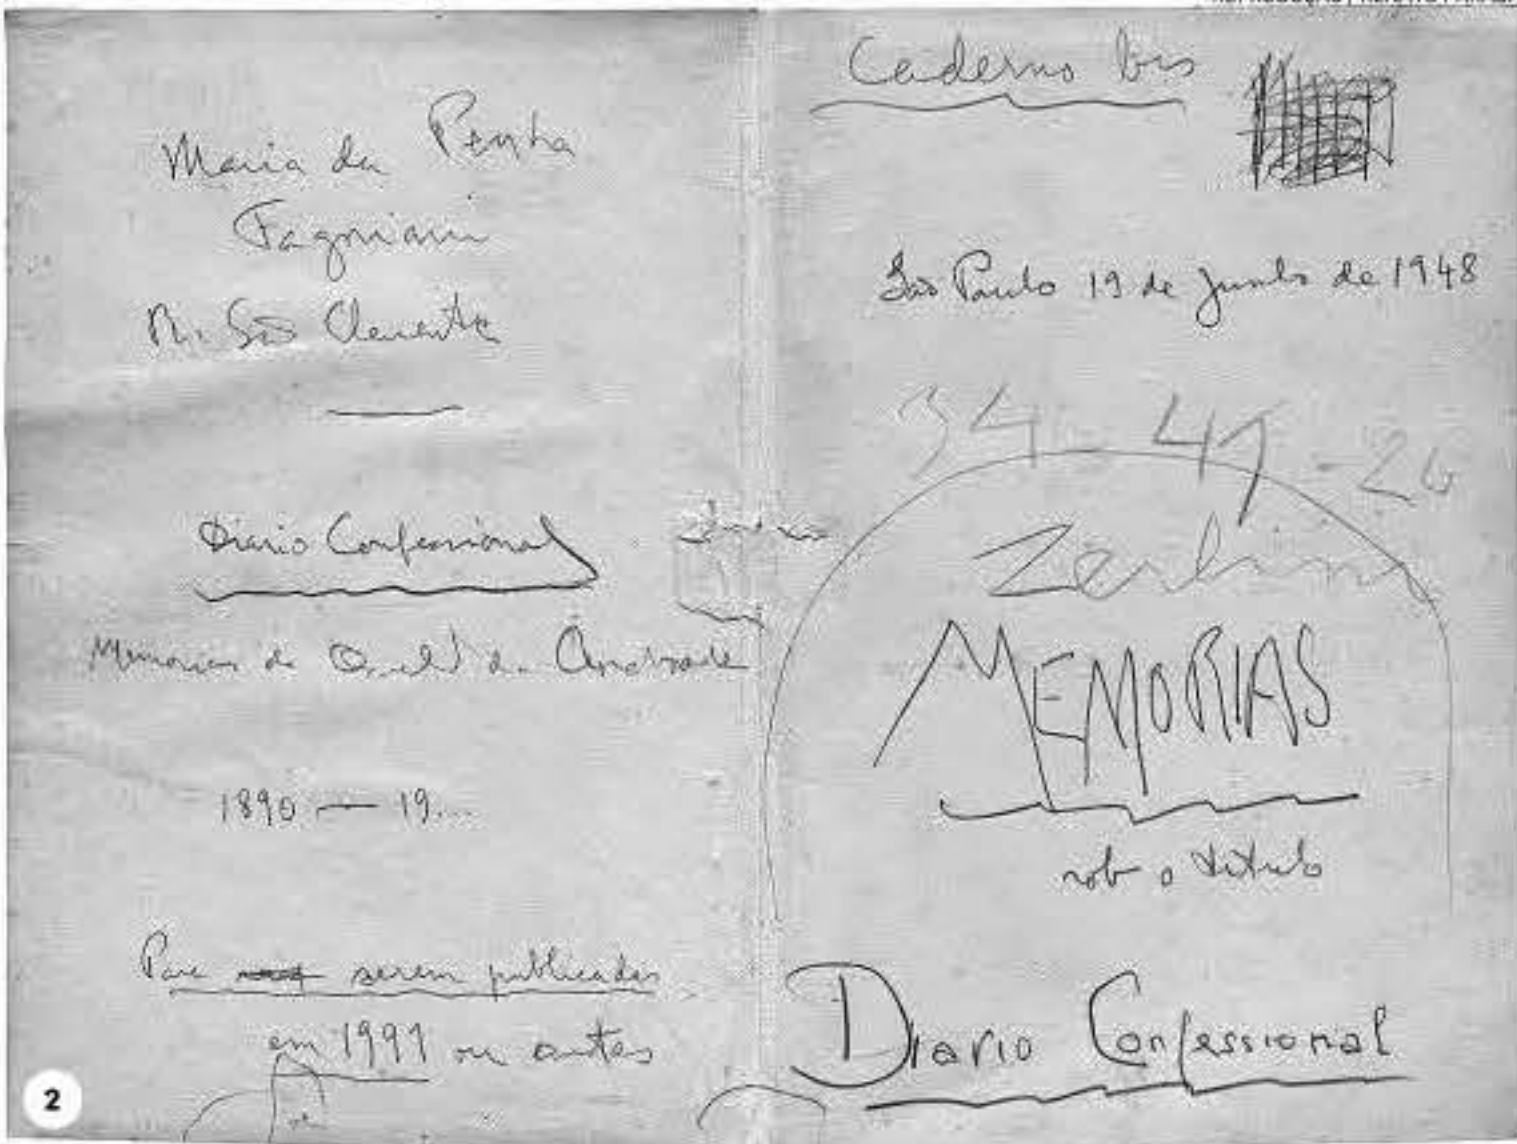 Maria da Penha
Fagniani
R. São Clemente
Diario Confessional
Memorias de Oswald de Andrade
1890 — 19...
Para serem publicadas
em 1991 ou antes
2
Caderno bis
São Paulo 19 de Junho de 1948
34-47-26
MEMORIAS
sob o titulo
Diario Confessional